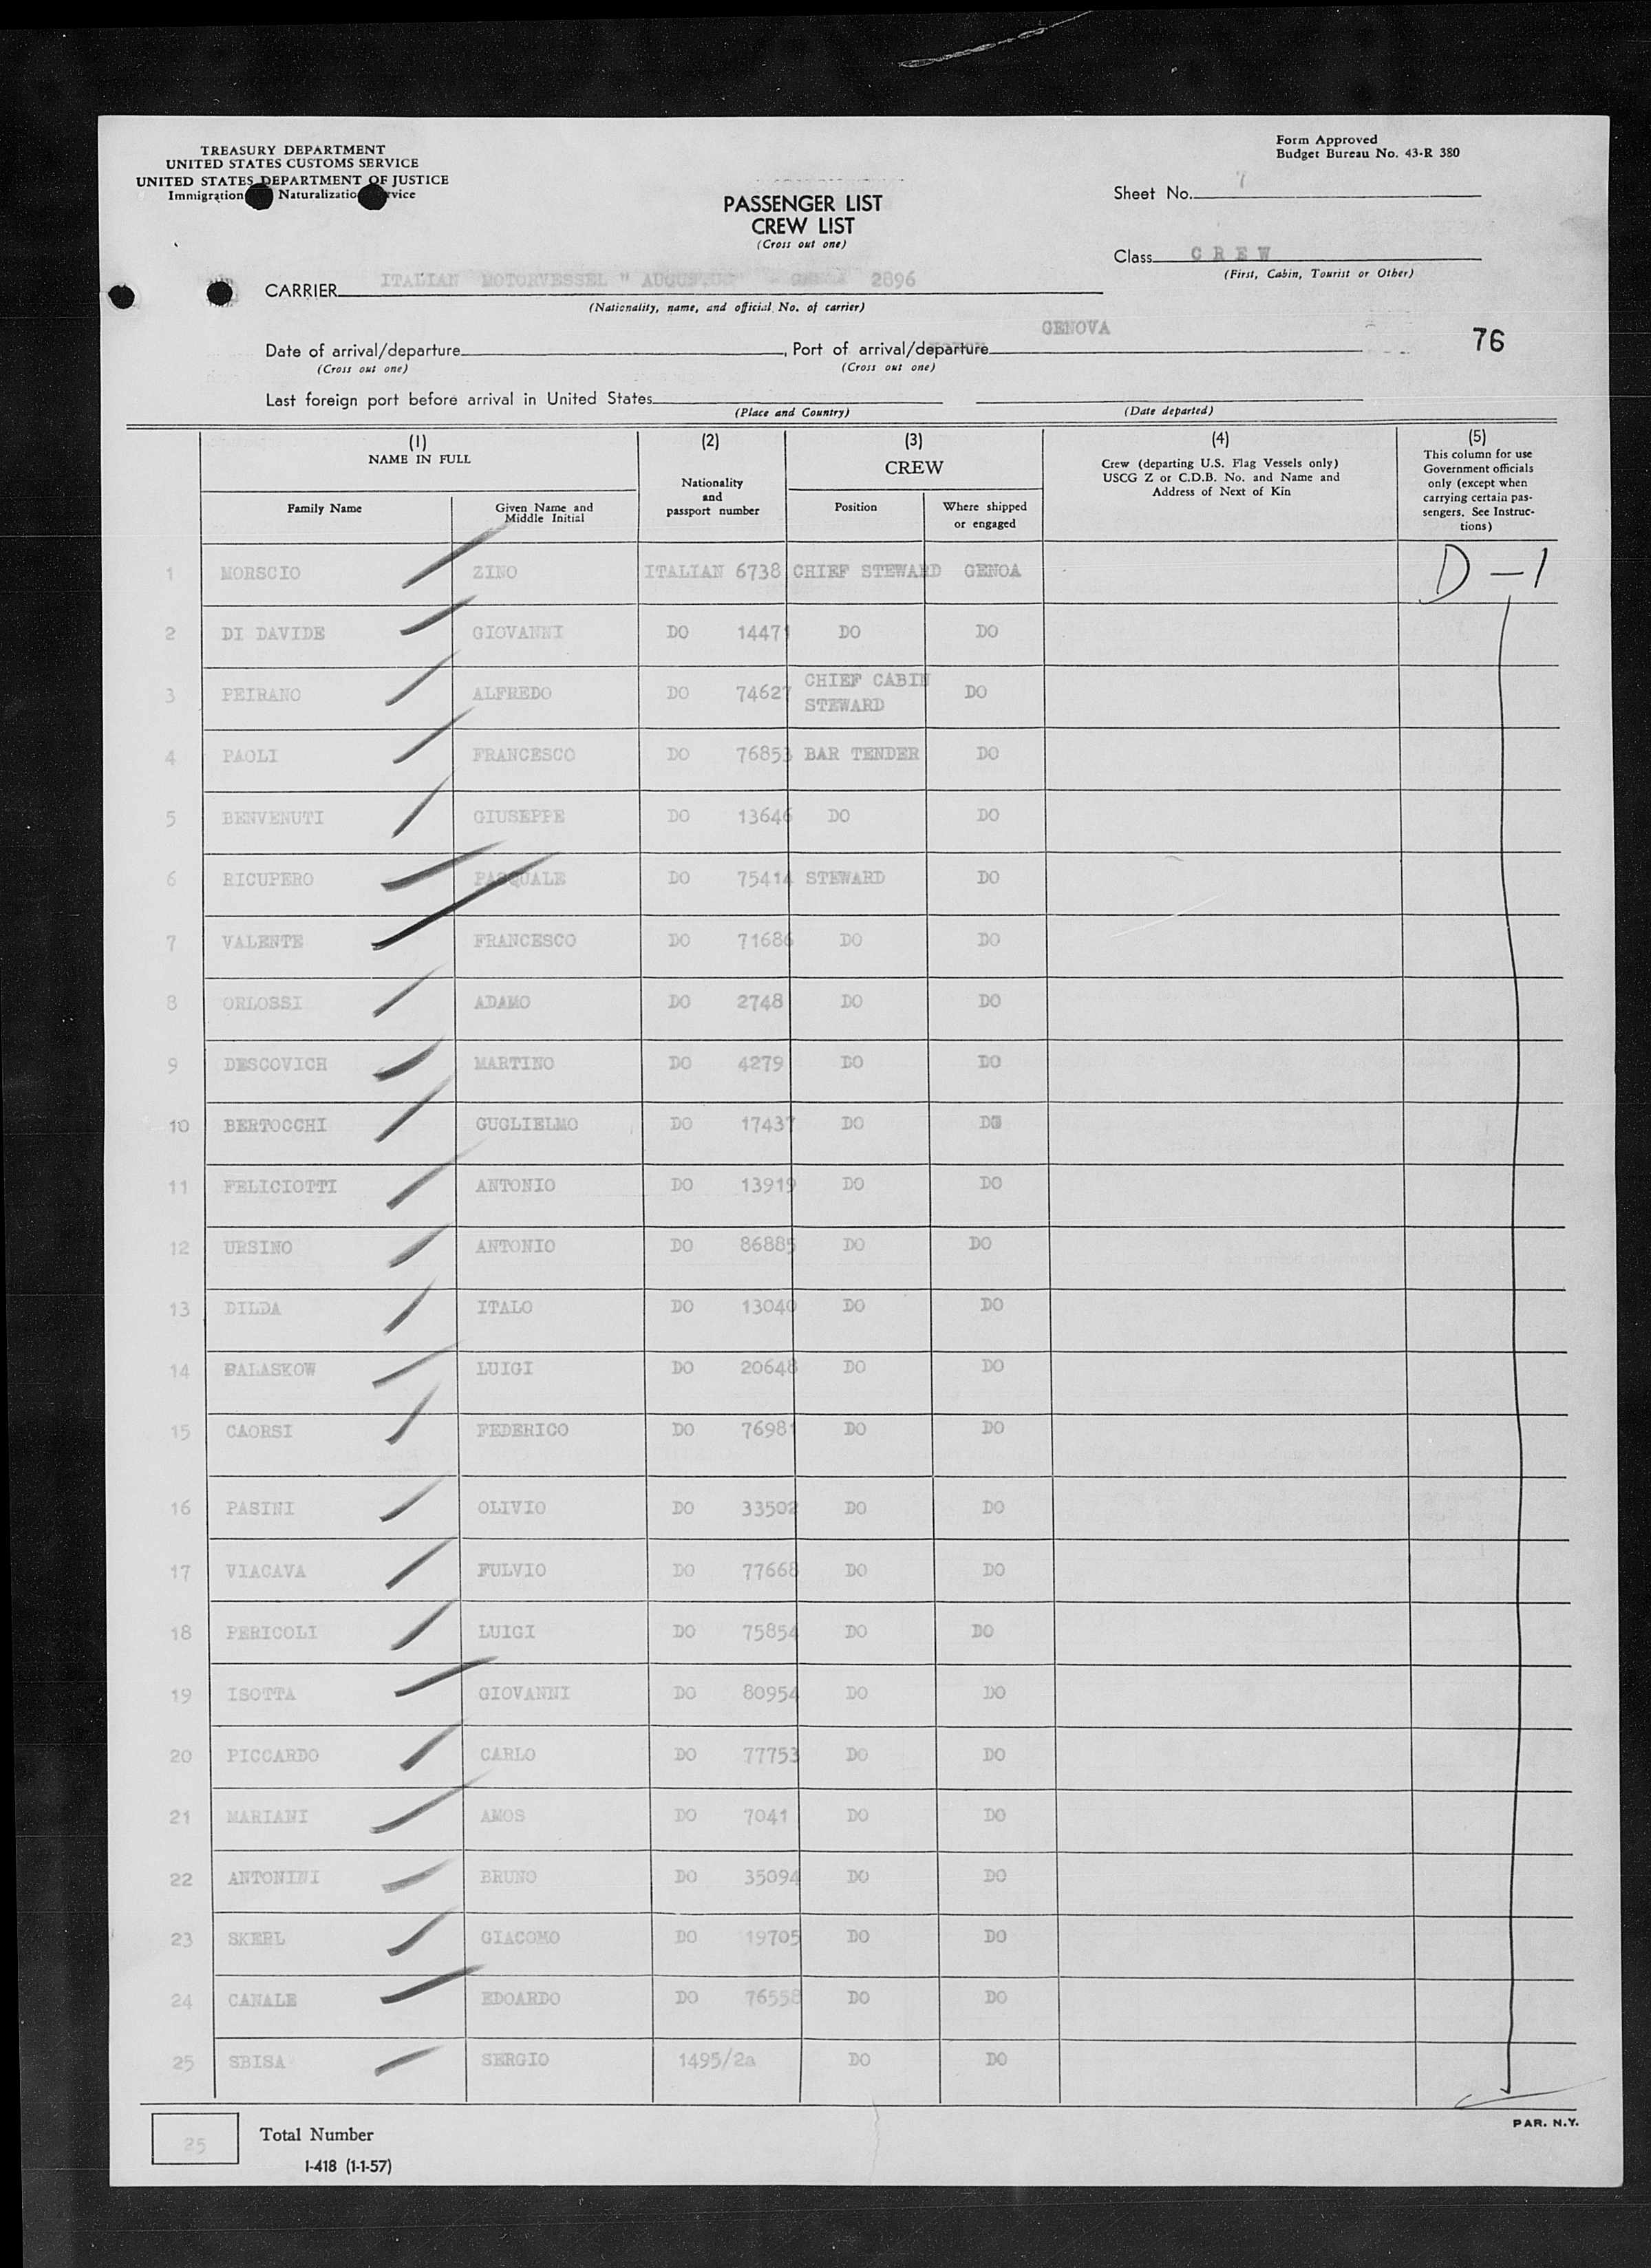 TREASURY DEPARTMENT
UNITED STATES CUSTOMS SERVICE
UNITED STATES DEPARTMENT OF JUSTICE
Immigration Naturalizatio rvice
Form Approved
Budget Bureau No. 43-R 380
PASSENGER LIST
CREW LIST
(Cross out one)
Sheet No. 7
Class CREW
(First, Cabin, Tourist or Other)
CARRIER ITALIAN MOTORVESSEL " AUGUSTUS" - 2896
(Nationality, name, and official No. of carrier)
GENOVA
76
Date of arrival/departure , Port of arrival/departure
(Cross out one) (Cross out one)
Last foreign port before arrival in United States
(Place and Country) (Date departed)
(1) NAME IN FULL
(2) Nationality and passport number
(3) CREW
(4) Crew (departing U.S. Flag Vessels only) USCG Z or C.D.B. No. and Name and Address of Next of Kin
(5) This column for use Government officials only (except when carrying certain pas- sengers. See Instruc- tions)
Family Name Given Name and Middle Initial Position Where shipped or engaged
1 MORSCIO ZINO ITALIAN 6738 CHIEF STEWARD GENOA D-1
2 DI DAVIDE GIOVANNI DO 14471 DO DO
3 PEIRANO ALFREDO DO 74627 CHIEF CABIN STEWARD DO
4 PAOLI FRANCESCO DO 76853 BAR TENDER DO
5 BENVENUTI GIUSEPPE DO 13646 DO DO
6 RICUPERO PASQUALE DO 75414 STEWARD DO
7 VALENTE FRANCESCO DO 71686 DO DO
8 ORLOSSI ADAMO DO 2748 DO DO
9 DESCOVICH MARTINO DO 4279 DO DO
10 BERTOCCHI GUGLIELMO DO 17437 DO DO
11 FELICIOTTI ANTONIO DO 13919 DO DO
12 URSINO ANTONIO DO 86885 DO DO
13 DILDA ITALO DO 13040 DO DO
14 BALASKOW LUIGI DO 20648 DO DO
15 CAORSI FEDERICO DO 76981 DO DO
16 PASINI OLIVIO DO 33502 DO DO
17 VIACAVA FULVIO DO 77668 DO DO
18 PERICOLI LUIGI DO 75854 DO DO
19 ISOTTA GIOVANNI DO 80954 DO DO
20 PICCARDO CARLO DO 77753 DO DO
21 MARIANI AMOS DO 7041 DO DO
22 ANTONINI BRUNO DO 35094 DO DO
23 SKERL GIACOMO DO 19705 DO DO
24 CANALE EDOARDO DO 76558 DO DO
25 SBISA SERGIO 1495/2a DO DO
25 Total Number
I-418 (1-1-57)
PAR. N.Y.